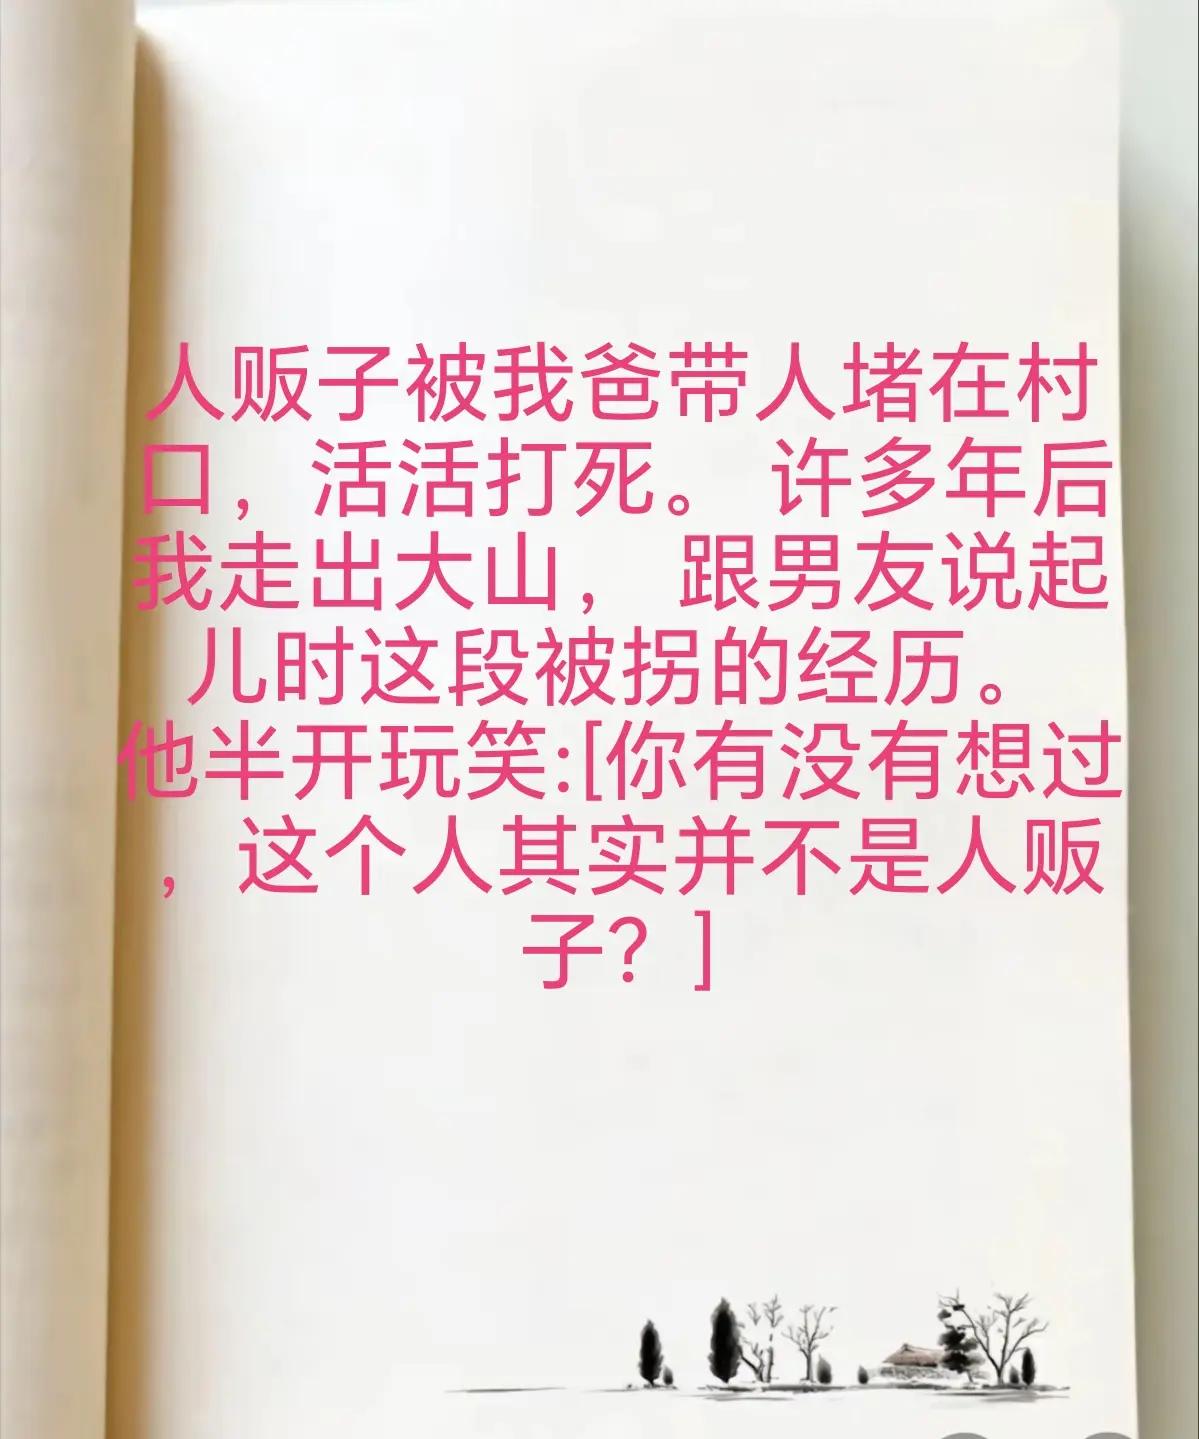 人贩子被我爸带人堵在村
口，活活打死。 许多年后
我走出大山， 跟男友说起
儿时这段被拐的经历。
他半开玩笑:[你有没有想过
，这个人其实并不是人贩
子？]